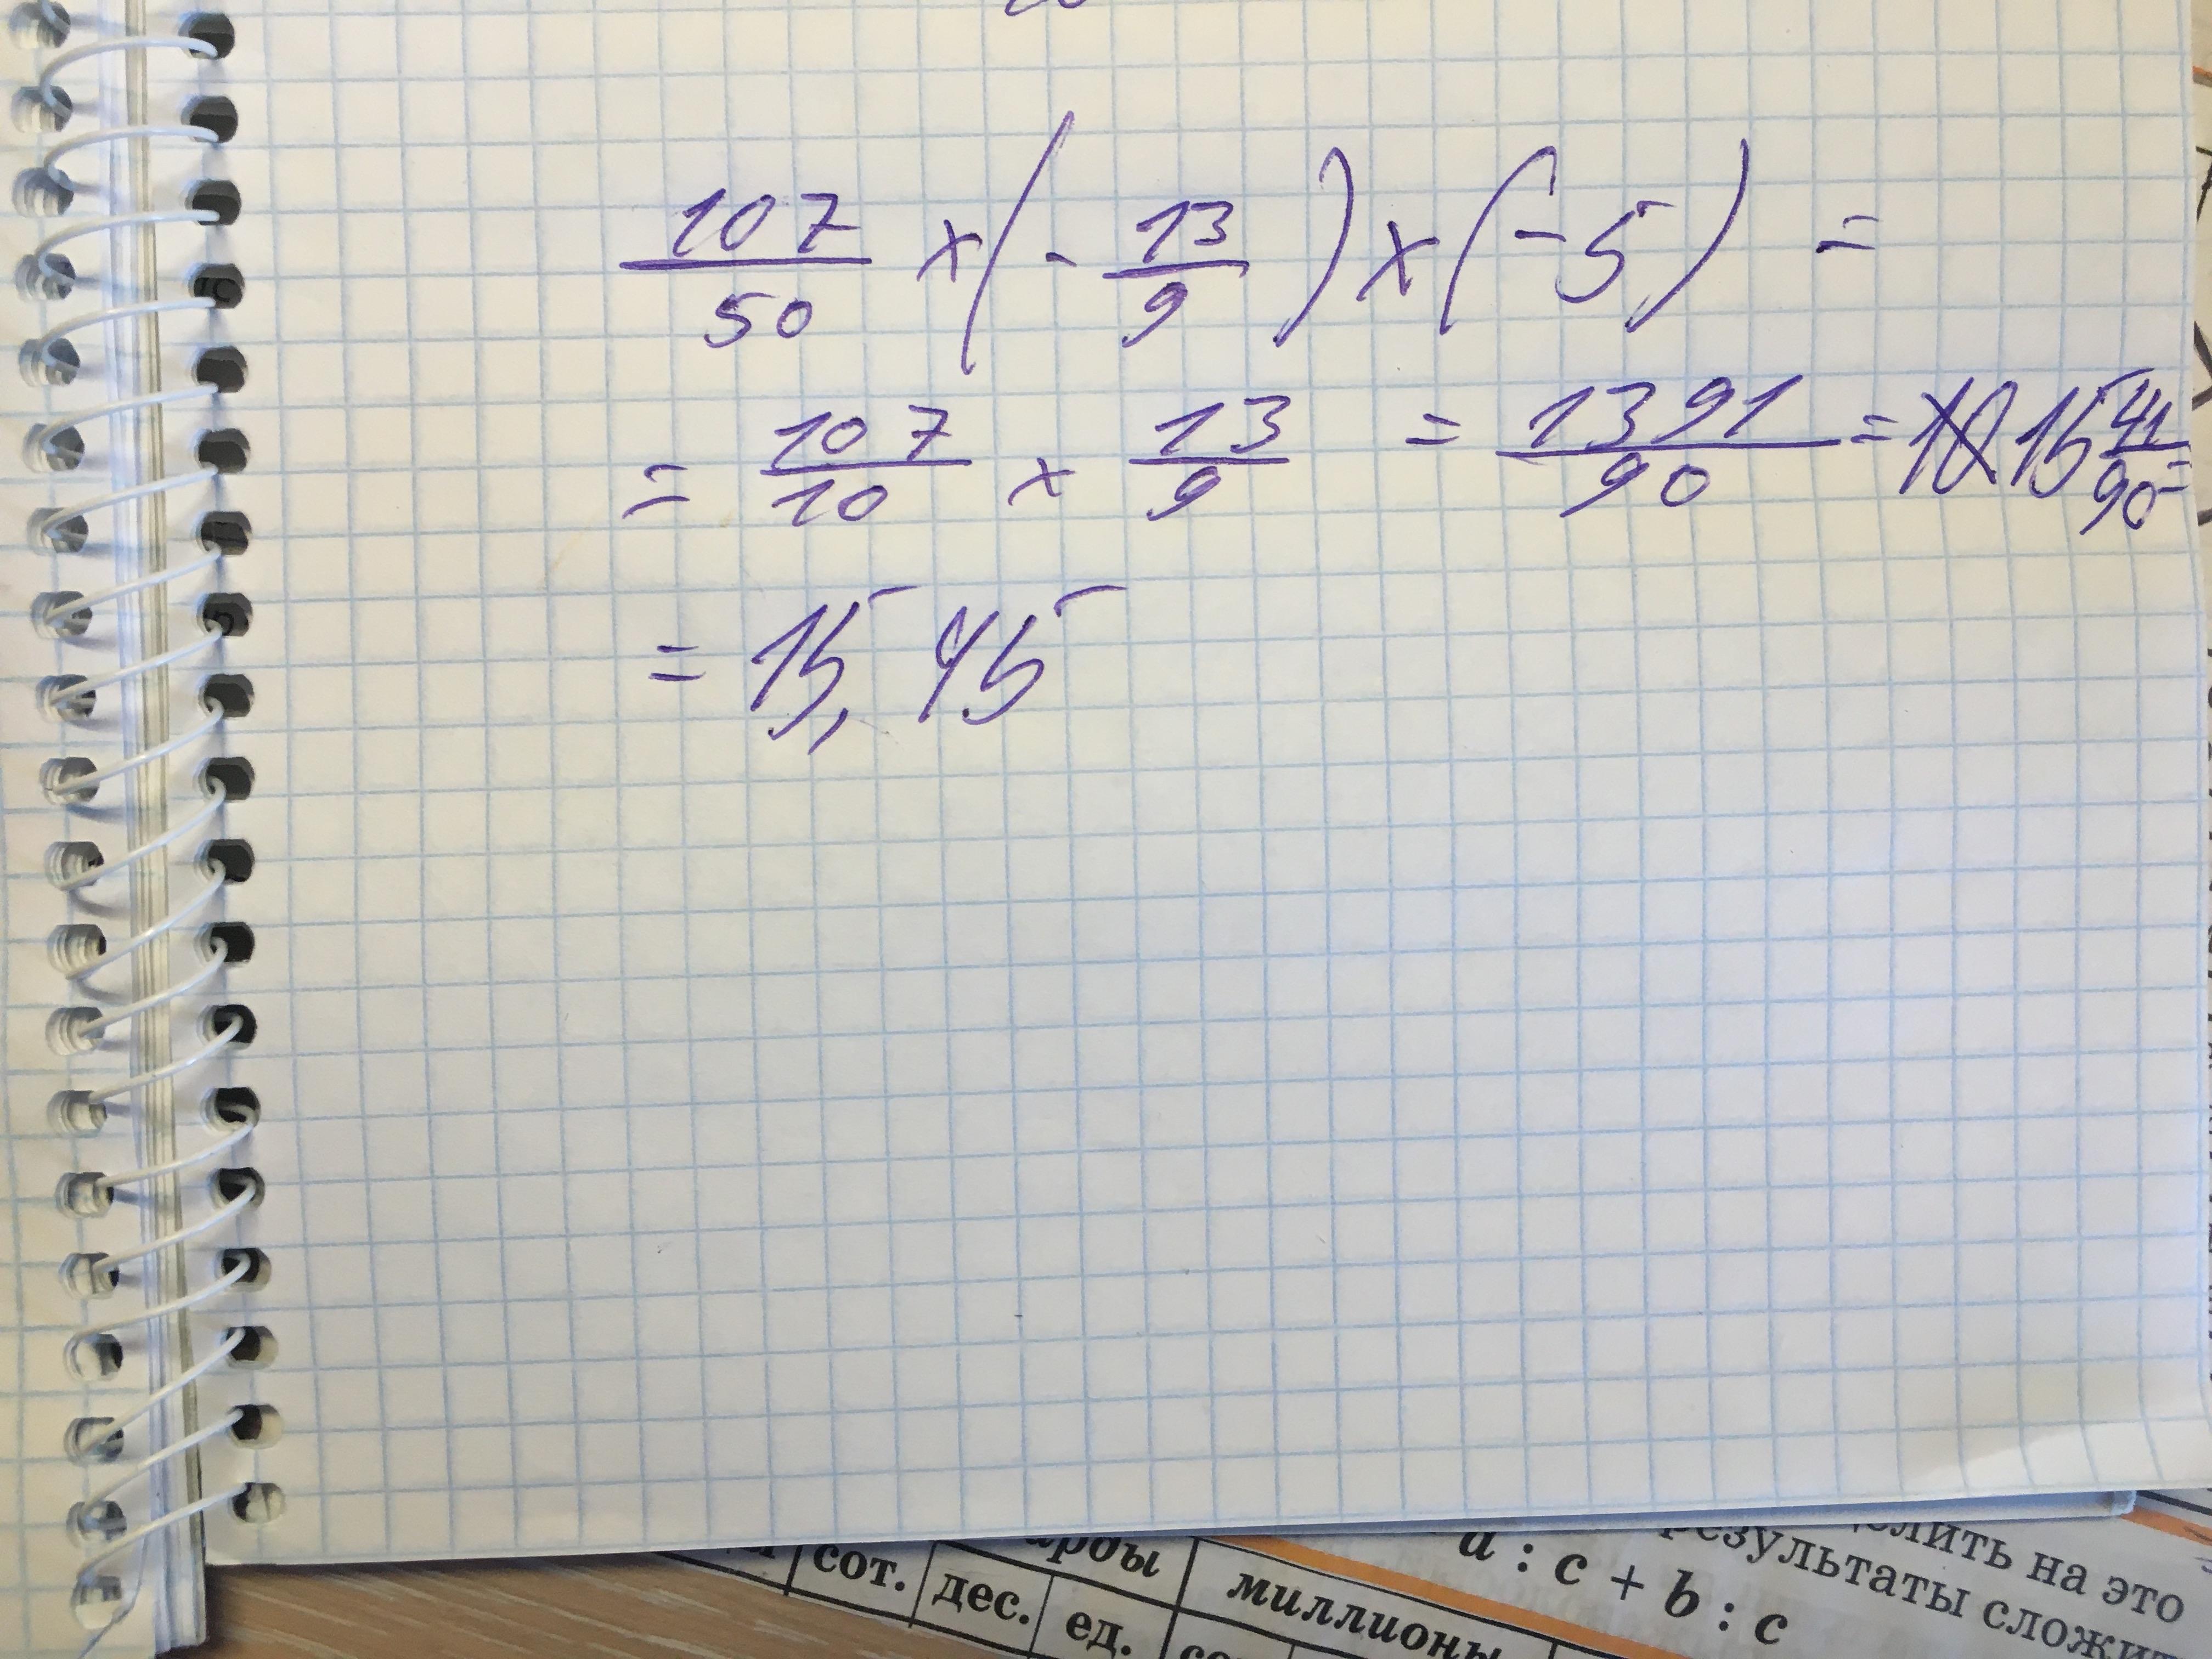 107/50 × (- 13/9) × (-5) =
= 107/10 × 13/9 = 1391/90 = 15 41/90 =
= 15,45
сот. дес. ед.
миллионы
на это
результаты
a : c + b : c